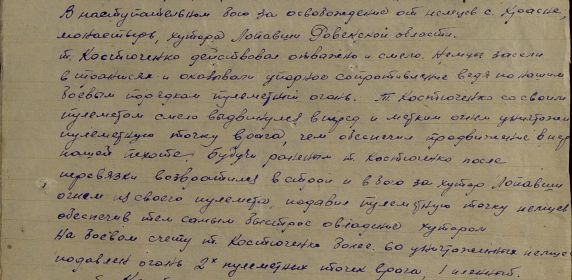 В наступательном бою за освобождение от немцев с. Красне,
монастырь, хутора Лопавши Ровенской области.
т. Костюченко действовал отважно и смело. Немцы засели
в траншеях и оказывали упорное сопротивление ведя по нашим
боевым порядкам пулеметный огонь. Т. Костюченко со своим
пулеметом смело выдвинулся вперед и метким огнем уничтожил
пулеметную точку врага, чем обеспечил продвижение вперед
нашей пехоте. Будучи раненым т. Костюченко после
перевязки возвратился в строй и в бою за хутор Лопавши
огнем из своего пулемета подавил пулеметную точку немцев
обеспечив тем самым быстрое овладение хутором
На боевом счету т. Костюченко более 60 уничтоженных немцев
подавлен огонь 2х пулеметных точек врага, 1 пленный.